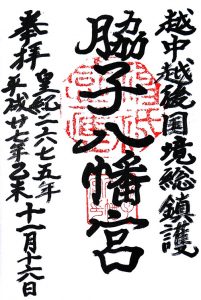 越中越後国境総鎮護
脇子八幡宮
奉拝
皇紀二六七五年
平成廿七年乙未十一月十六日